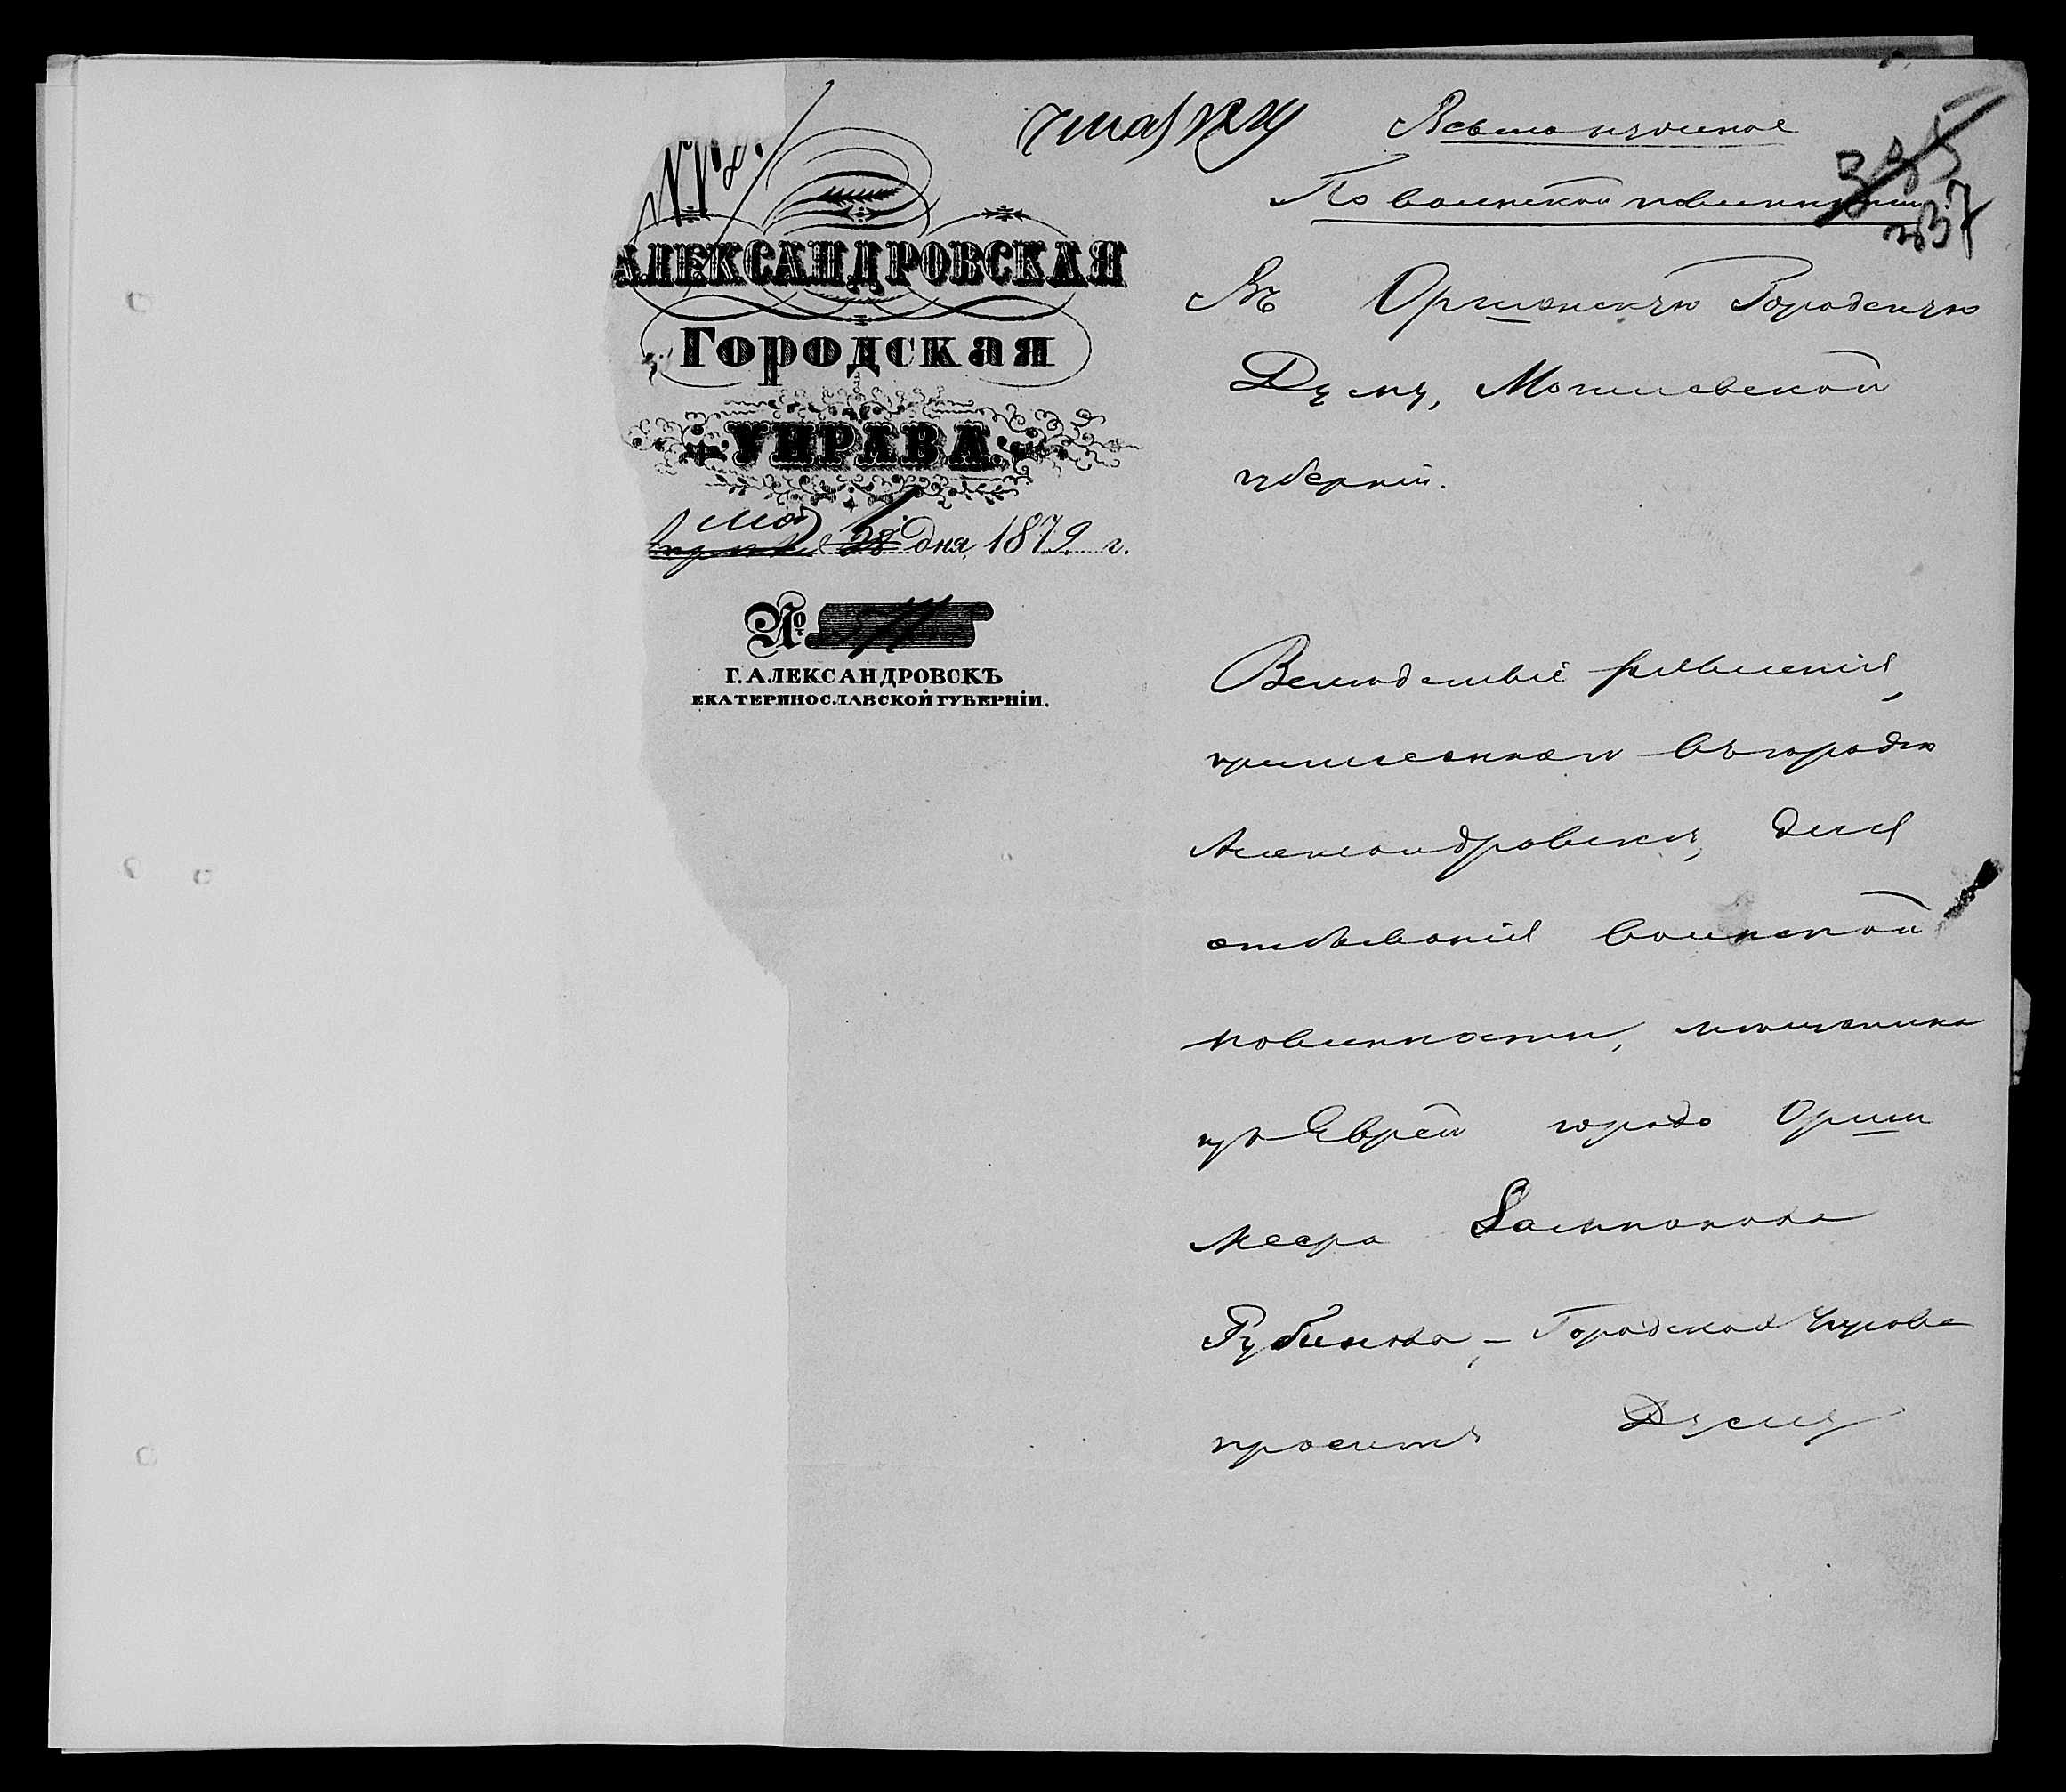 АЛЕКСАНДРОВСКАЯ
Городская
УПРАВА.
мая 1 Апреля 28 дня 1879 г.
№
Г. АЛЕКСАНДРОВСКЪ
ЕКАТЕРИНОСЛАВСКОЙ ГУБЕРНІИ.
7 мая 1879
Весьма нужное
По воинской повинности
335
237
Въ Оршанскую Городскую
Думу, Могилевской
губерніи.
Вслѣдствіе заявленія,
причисленнаго въ городѣ
Александровскѣ, для
отбыванія воинской
повинности, мѣщанина
изъ Еврей города Орши
Меера
Рубинова, – Городская Управа
проситъ Думу